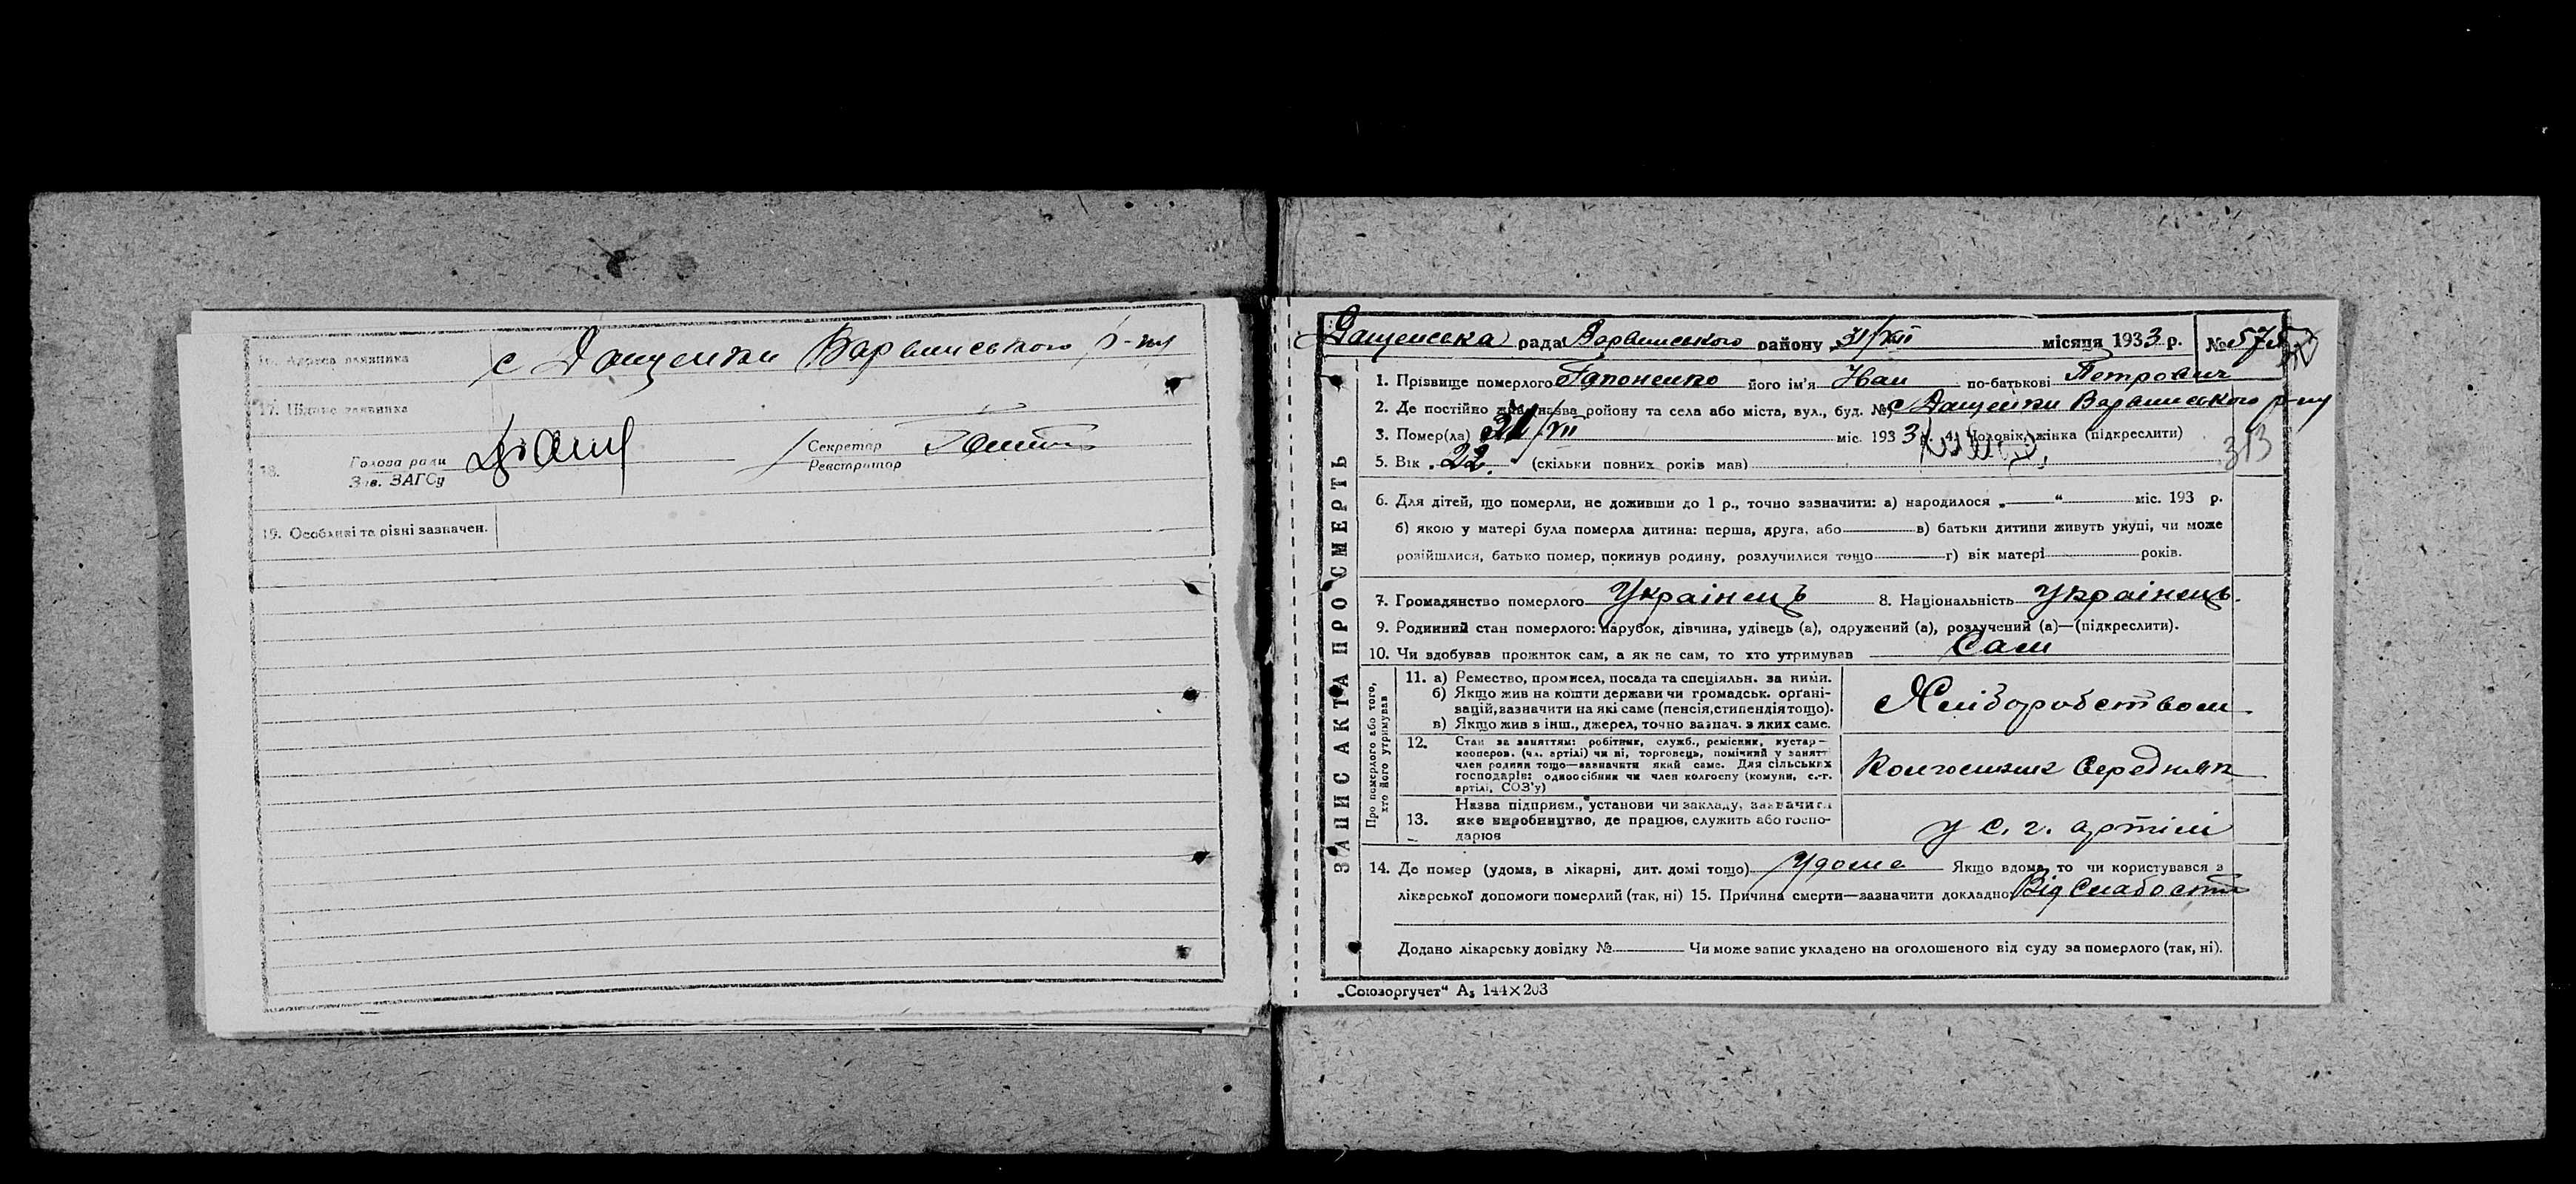 16. Адреса заявника с Дащенки Варвинського р-ну
17. Підпис заявника
18. Голова ради
Зав. ЗАГСу
Секретар
Реєстратор
19. Особливі та різні зазначен.
Дащенська рада Варвинського району 31/XII місяця 1933 р. № 57
1. Прізвище померлого Гапоненко його ім'я Иван по-батькові Петрович
2. Де постійно жив, назва району та села або міста, вул., буд. № с Дащенки Варвинського р-ну
3. Помер(ла) /VII міс. 1933 р. 4. Чоловік, жінка (підкреслити)
313
5. Вік 22. (скільки повних років мав)
6. Для дітей, що померли, не доживши до 1 р., точно зазначити: а) народилося „ “ міс. 193 р.
б) якою у матері була померла дитина: перша, друга, або в) батьки дитини живуть укупі, чи може
розійшлися, батько помер, покинув родину, розлучилися тощо г) вік матері років.
7. Громадянство померлого Українець 8. Національність Українець.
9. Родинний стан померлого: парубок, дівчина, удівець (а), одружений (а), розлучений (а)—(підкреслити).
10. Чи здобував прожиток сам, а як не сам, то хто утримував Сам
ЗАПИС АКТА ПРО СМЕРТЬ
Про померлого або того,
хто його утримував
11. а) Ремество, промисел, посада та спеціяльн. за ними.
б) Якщо жив на кошти держави чи громадськ. органі-
зацій, зазначити на які саме (пенсія, стипендія тощо).
в) Якщо жив в інш., джерел, точно вазнач. з яких саме.
Хліборобством
12. Стан за заняттям: робітник, служб., ремісник, кустар—
кооперов. (чл. артілі) чи ні, торговець, помічний у занятт
член родини тощо—зазначити який саме. Для сільських
господарів: одноосібник чи член колгоспу (комуни, с.-г.
артілі, СОЗ'у)
Колгоспник Середняк
13. Назва підприєм., установи чи закладу, зазначити
яке виробництво, де працюв, служить або госпо-
дарюв
у с. г. артілі
14. Де помер (удома, в лікарні, дит. домі тощо) Удома Якщо вдома, то чи користувався з
лікарської допомоги померлий (так, ні) 15. Причина смерти—зазначити докладно Від Слабости
Додано лікарську довідку № Чи може запис укладено на оголошеного від суду за померлого (так, ні).
„Союзоргучет“ А₅ 144×203